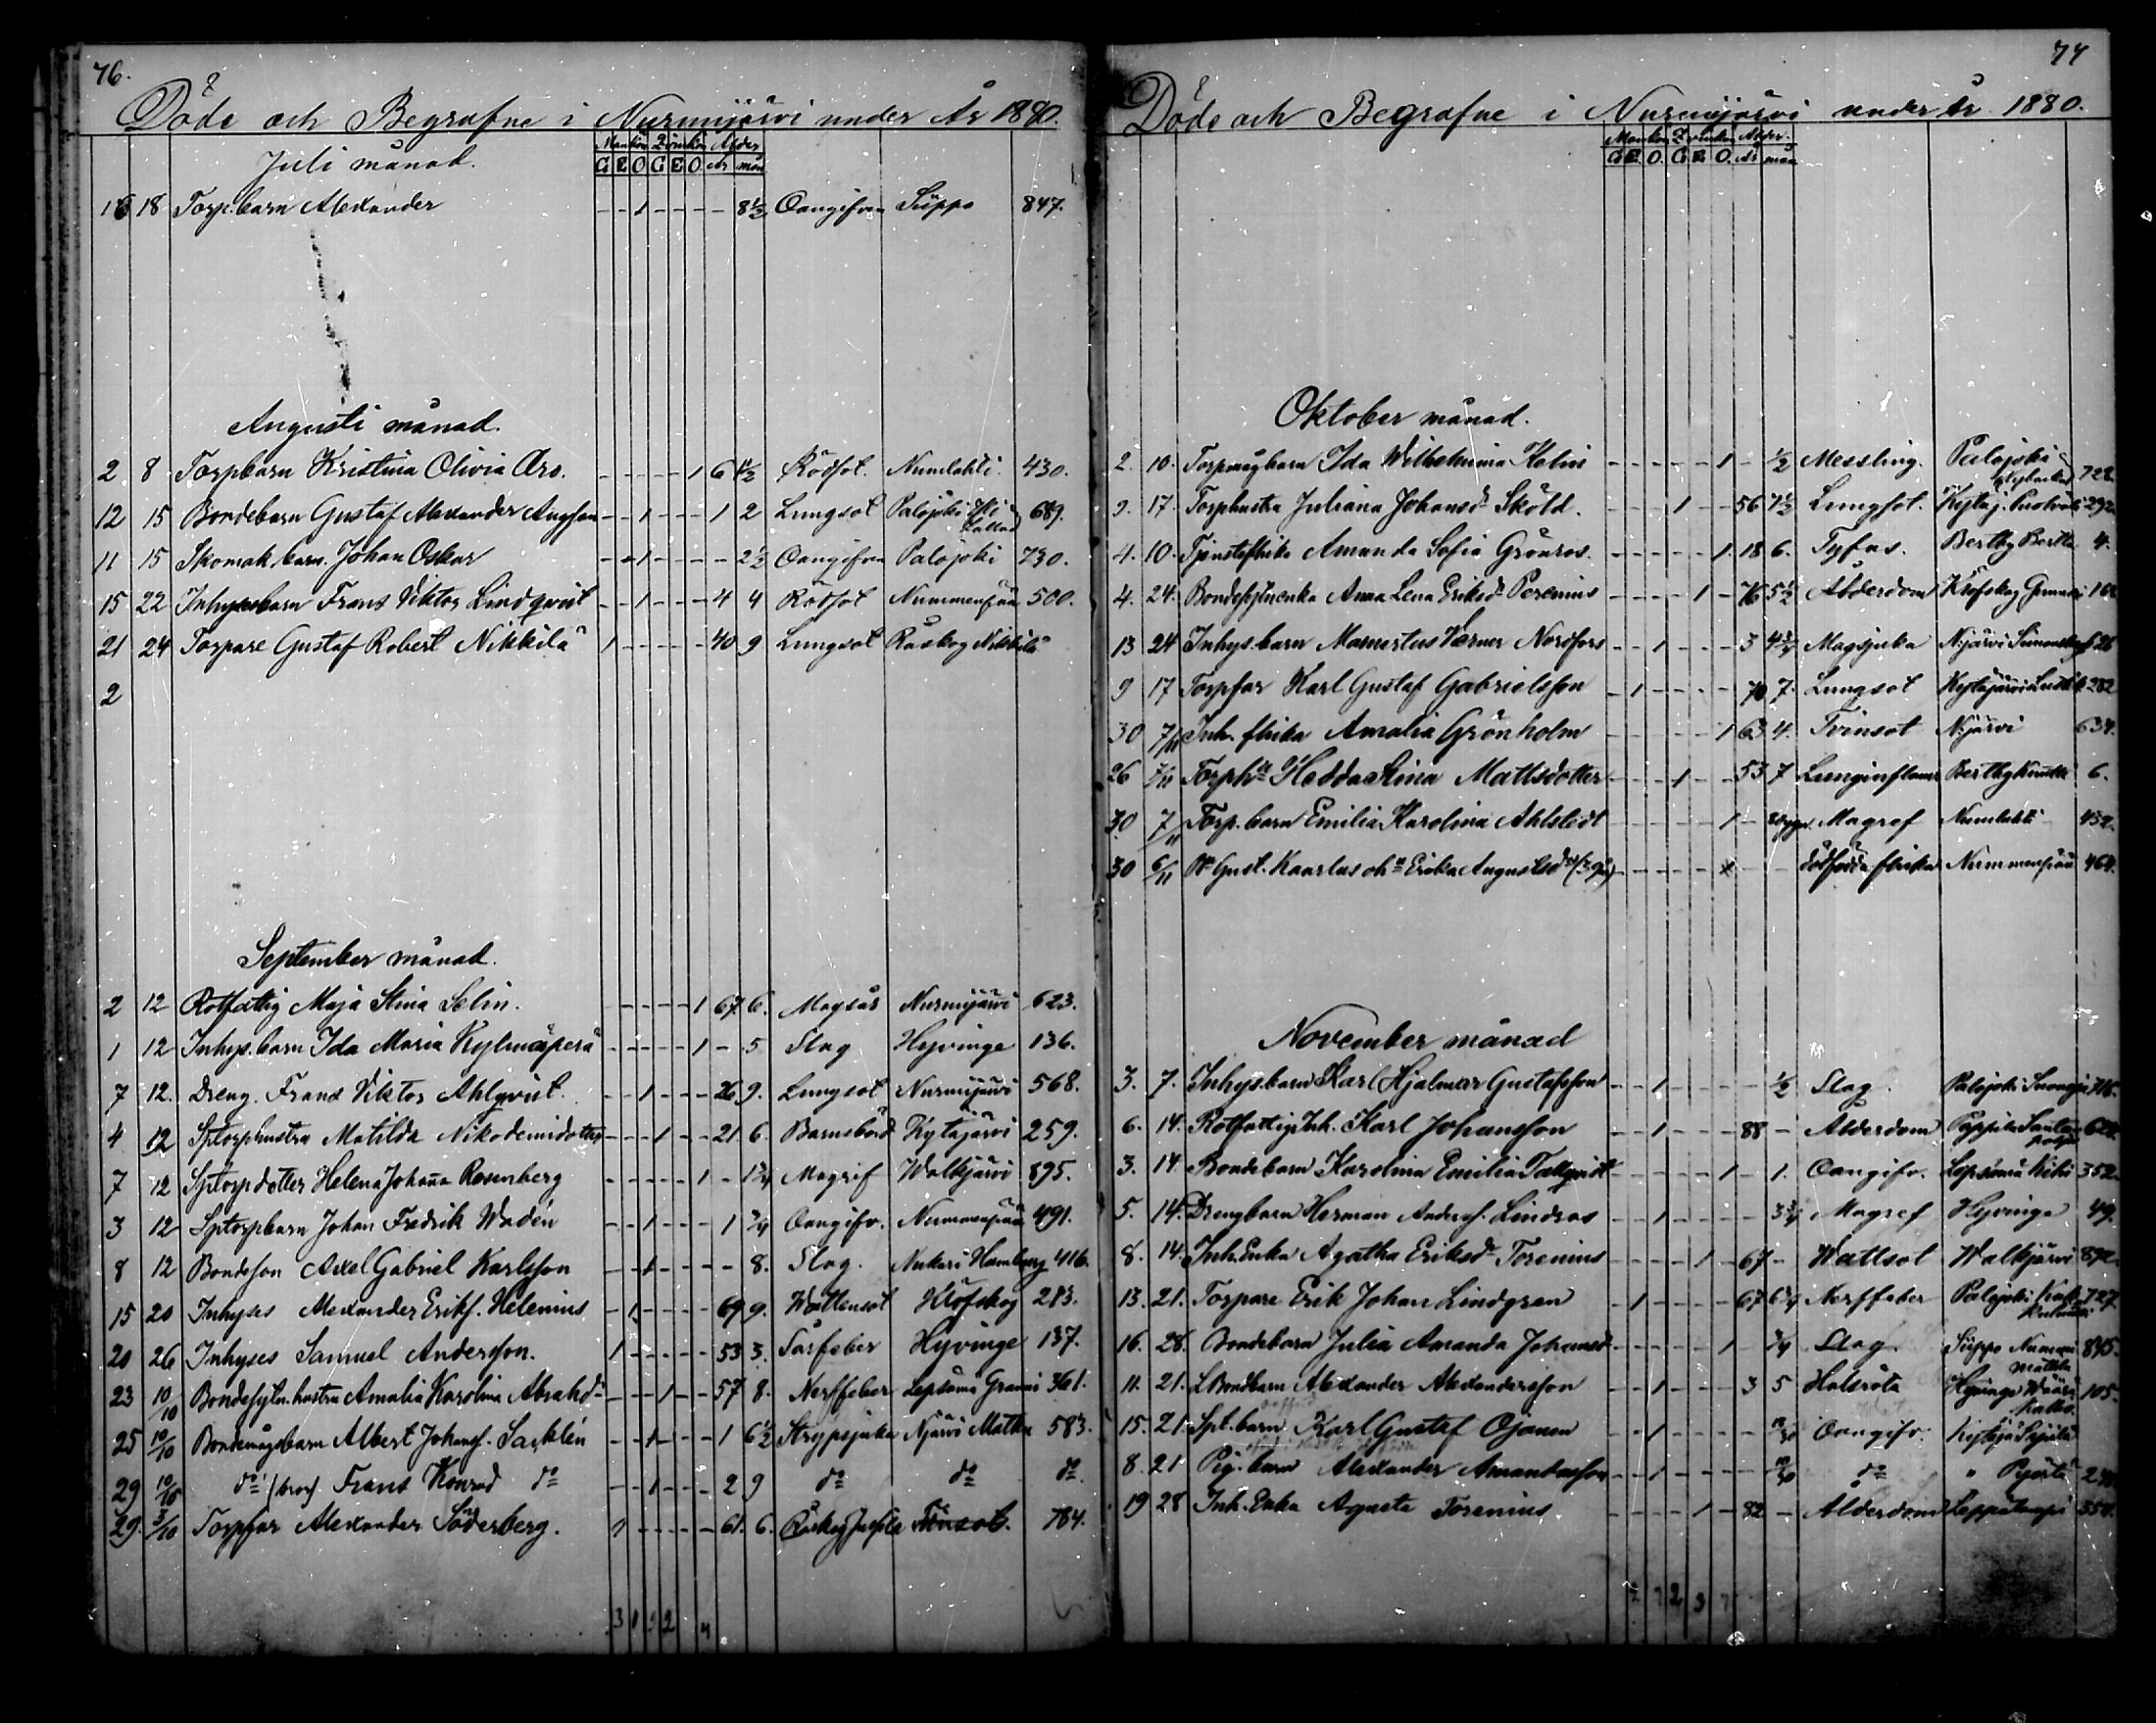 76.
Döde och Begrafne i Nurmijärvi under År 1880.
Mankön Qvinkön Ålder
G E O G E O År mån
Juli månad.
16 18 Torp.barn Alexander - - 1 - - - - 8 1/2 Oangifven Siippo 847.
Augusti månad.
2 8 Torpbarn Kristina Olivia Aro. - - - - - 1 6 Rödsot. Numlahti. 430.
12 15 Bondebarn Gustaf Alexander - - 1 - - - 1 2 Lungsot Palojoki 689.
11 15 Skomak.barn. Johan Oskar - - 1 - - - - 2 1/2 Oangifven Palojoki 730.
15 22 Inhysesbarn Frans Viktor Lindqvist - - 1 - - - 4 4 Rödsot Nummenpää 500.
21 24 Torpare Gustaf Robert Nikkilä 1 - - - - - 40 9 Lungsot Råskog Nikkilä
2
September månad.
2 12 Rotfattig Maja Stina Selin. - - - - - 1 67 6. Magsår Nurmijärvi 623.
1 12 Inhys.barn Ida Maria Kylmäperä - - - - - 1 - 5 Slag Hyvinge 136.
7 12. Dreng. Frans Viktor Ahlqvist. - - 1 - - - 26 9. Lungsot Nurmijärvi 568.
4 12 Sptorphustru Matilda Nikodemidotter - - - 1 - - 21 6. Barnsbörd Kytäjärvi 259.
7 12 Sptorpdotter Helena Johanna Rosenberg - - - - - 1 - 1 3/4 Magrif Walkjärvi 895.
3 12 Sptorpbarn Johan Fredrik Wadén - - 1 - - - 1 3/4 Oangifv. Nummenpää 491.
8 12 Bondeson Axel Gabriel Karlsson - - 1 - - - - 8. Slag. Nukari Hamberg 416.
15 20 Inhyses Alexander Eriks. Helenius - 1 - - - - 69 9. Wattensot Klöfskog 283.
20 26 Inhyses Samuel Andersson. 1 - - - - - 53 3. Sårfeber Hyvinge 137.
23 10/10 Bondesytn.hustru Amalia Karolina Abrahd - - - 1 - - 57 8. Nerffeber Lepsämä Granni 361.
25 10/10 Bondemågsbarn Albert Johans. Sacklén - - 1 - - - 1 6 1/2 Strypsjuka Njärvi Matku 583.
29 10/10 do (bror) Frans Konrad do - - 1 - - - 2 9 do do do.
29. 3/10 Torpfar Alexander Söderberg. 1 - - - - - 61. 6. 784.
3 1 2 4
77
Döde och Begrafne i Nurmijärvi under År 1880.
Mankön Qvinkön Ålder.
G E. O. G E. O. År mån
Oktober månad.
2. 10. Torpmågbarn Ida Wilhelmina - - - - - 1 - 1/2 Messling. Palojoki 728.
9. 17. Torphustru Juliana Johansdr Sköld. - - - 1 - - 56 7 1/2 Lungsot. Kytäj. 292.
4. 10. Tjensteflicka Amanda Sofia Grönros. - - - - - 1. 18 6. Tyfus. Bertby 4.
4. 24. Bondesytnenka Anna Lena Eriksdr Perenius - - - - 1 - 76 5 1/2 Ålderdom Klöfskog
13 24 Inhys.barn Mamertus Verner Nordfors - - 1 - - - 3 4 3/4 Magsjuka N:järvi 26
9 17 Torpfar Karl Gustaf Gabrielsson - 1 - - - - 70 7. Lungsot Kytäjärvi 282
30 7/11 Inh. flicka Amalia Grönholm - - - - - 1 63 4. Tvinsot N:järvi 634.
26 7/11 Torphu Hedda Stina Mattsdotter - - - 1 - - 53 7 Lunginflam Bertby Knuttti 6.
30 7/11 Torp.barn Emilia Karolina Ahlstedt - - - - - 1 - Magref Numlahti 432.
30 6/11 Gust. Kaarlus oh Erika Augustsdr - - - - - x - - dödfödda flicka Nummenpää 464.
November månad
3. 7. Inhysbarn Karl Hjalmar Gustafsson - - 1 - - - - 1/2 Slag. Palojoki
6. 14. Rotfattig Inh. Karl Johansson - - 1 - - - 88 - Ålderdom
3. 14. Bondebarn Karolina Emilia - - - - - 1 - 1. Oangifv. Lepsämä 352.
5. 14. Drengbarn Herman Anders. Lindros - - 1 - - - - 3 3/4 Magref Hyvinge 49.
8. 14. Inh.Enka Agatha Eriksdr Torenius - - - - 1 - 67 - Wattsot Walkjärvi 892.
13. 21. Torpare Erik Johan Lindgren - 1 - - - - 67 6 3/4 Nerffeber Palojoki 727.
16. 28. Bondebarn Julia Amanda Johansd - - - - - 1 - 3/4 Slag. Siippo Nummi Mattila 845.
11. 21. Bondbarn Alexander Alexandersson - - 1 - - - 3 5 Halsröta Hyvinge 105.
15. 21 Spt.barn Karl Gustaf Ojanen - - 1 - - - - 10/30 Oangifv.
8. 21 Pig.barn Alexander Amandasson - - 1 - - - - do
19 28 Inh. Enka Agneta Torenius. - - - - 1 - 82 - Ålderdom Leppälampi
7 2 3 7